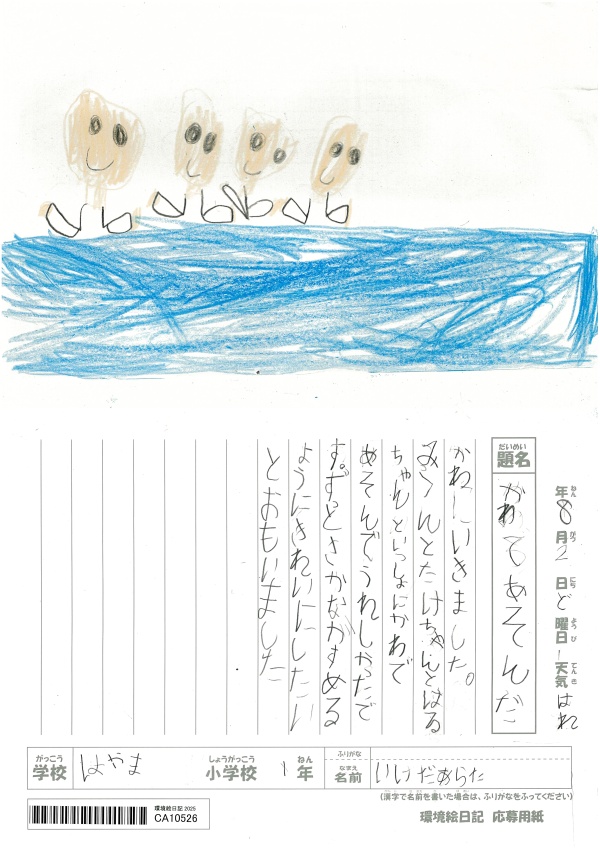 年8月2日ど曜日天気はれ
ねん がつ にち ようび てんき
だいめい
題名
かわであそんだ
かわにいきました。
みくんとたけちゃんとはる
ちゃんといっしょにかわで
あそんでうれしかったで
す。ずっとさかながすめる
ようにきれいにしたい
とおもいました
がっこう
学校
はやま
しょうがっこう
小学校
1
ねん
年
ふりがな
なまえ
名前
いいだあらた
(漢字で名前を書いた場合は、ふりがなをふってください)
環境絵日記 2025
CA10526
環境絵日記 応募用紙